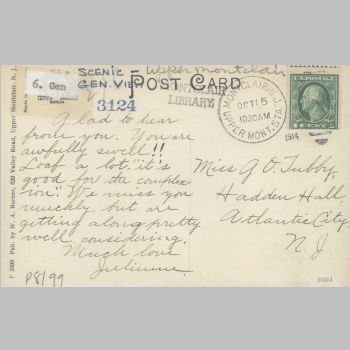 SCENIC - Upper Montclair
GEN. VIEW
6. Gen
POST CARD
BERLIN
3124
MONTCLAIR
LIBRARY
MONTCLAIR, N.J.
OCT 15
1030AM
1914
UPPER MONT. STA.
U.S. POSTAGE
1 CENT 1
Glad to hear
from you. You are
awfully swell!!
Loaf a lot, "it's
good for the complex
ion." We miss you
muchly, but are
getting along pretty
well, considering.
Much love
Julienne.
Miss G. O. Tubby,
Hadden Hall,
Atlantic City
N. J.
P8/99
F 3980 Pub. by W. A. Harms, 629 Valley Road, Upper Montclair, N. J.